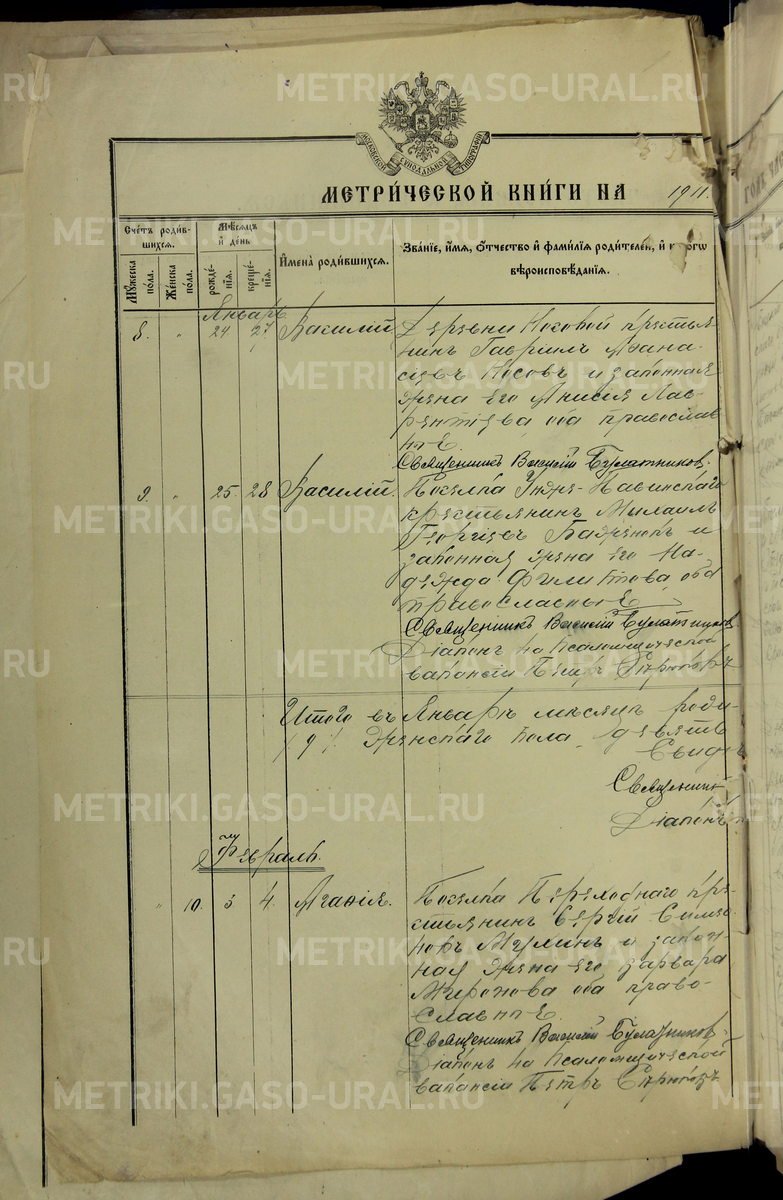 METRIKI.GASO-URAL.RU
МОСКОВСКОЙ СѴНОДАЛЬНОЙ ТИПОГРАФІИ
МЕТРИ́ЧЕСКОЙ КНИ́ГИ НА 1911.
Сче́тъ роди́в-
шихся.
Мѹжеска по́ла.
Же́нска по́ла.
Мѣ́сяцъ и де́нь
рожде́нія.
креще́нія.
И҆мена̀ роди́вшихся.
Зва́ніе, и҆́мя, ѻ҆́тчество и҆ фами́лія роди́телей, и҆
вѣроисповѣ́данія.
Январь
8. " 24 27 Василій Деревни Носовой крестья-
нинъ Гавриилъ Аѳана-
сіевъ Носовъ и законная
жена его Анисія Лав-
рентіева, оба православ
ные
Священникъ Василій Булатниковъ.
9. " 25. 28 Василій. Поселка
крестьянинъ Михаилъ
Георгіевъ и
законная жена его На-
дежда Филиппова, оба
православные
Священникъ Василій Булатниковъ
Діаконъ на Псаломщической
вакансіи Петръ
Итого въ Январѣ мѣсяцѣ роди-
/9/ женскаго пола девять
Священник
Діаконъ
Февраль.
" 10. 3 4. Агаѳія. Поселка Переходнаго кре-
стьянинъ Сергій Симео-
новъ и закон-
ная жена его Варвара
Миронова оба право-
славные.
Священникъ Василій Булатниковъ.
Діаконъ на Псаломщической
вакансіи Петръ